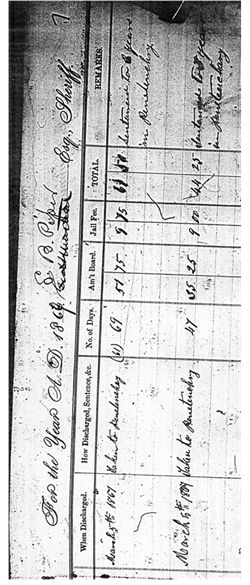 For the Year A. D. 1869, B. Piper Esq. Sheriff.
When Discharged. How Discharged, Sentence, &c. No. of Days. Am't Board. Jail Fee. TOTAL REMARKS
March 5th 1869 Taken to penitentiary (61) 69 51 75 9 75 61 50 Sentenced to 8 years
in Penitentiary
March 5th 1869 Taken to penitentiary 47 35 25 9 00 44 25 Sentenced to years
in Penitentiary